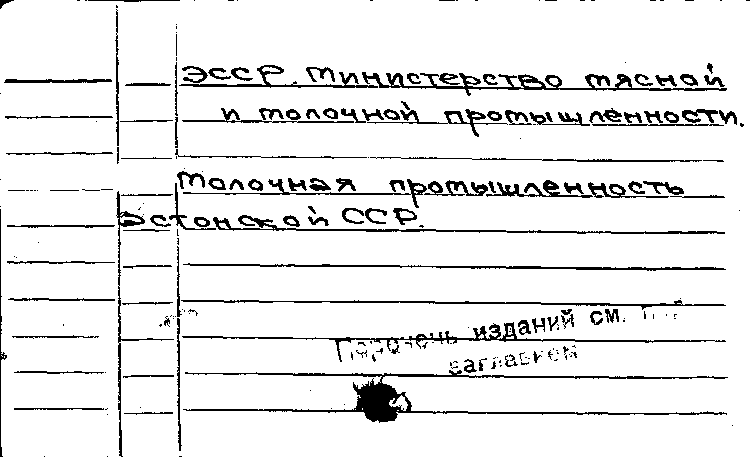 ЭССР. Министерство мясной
и молочной промышленности.
Молочная промышленность
Эстонской ССР.
Перечень изданий см. под
заглавием